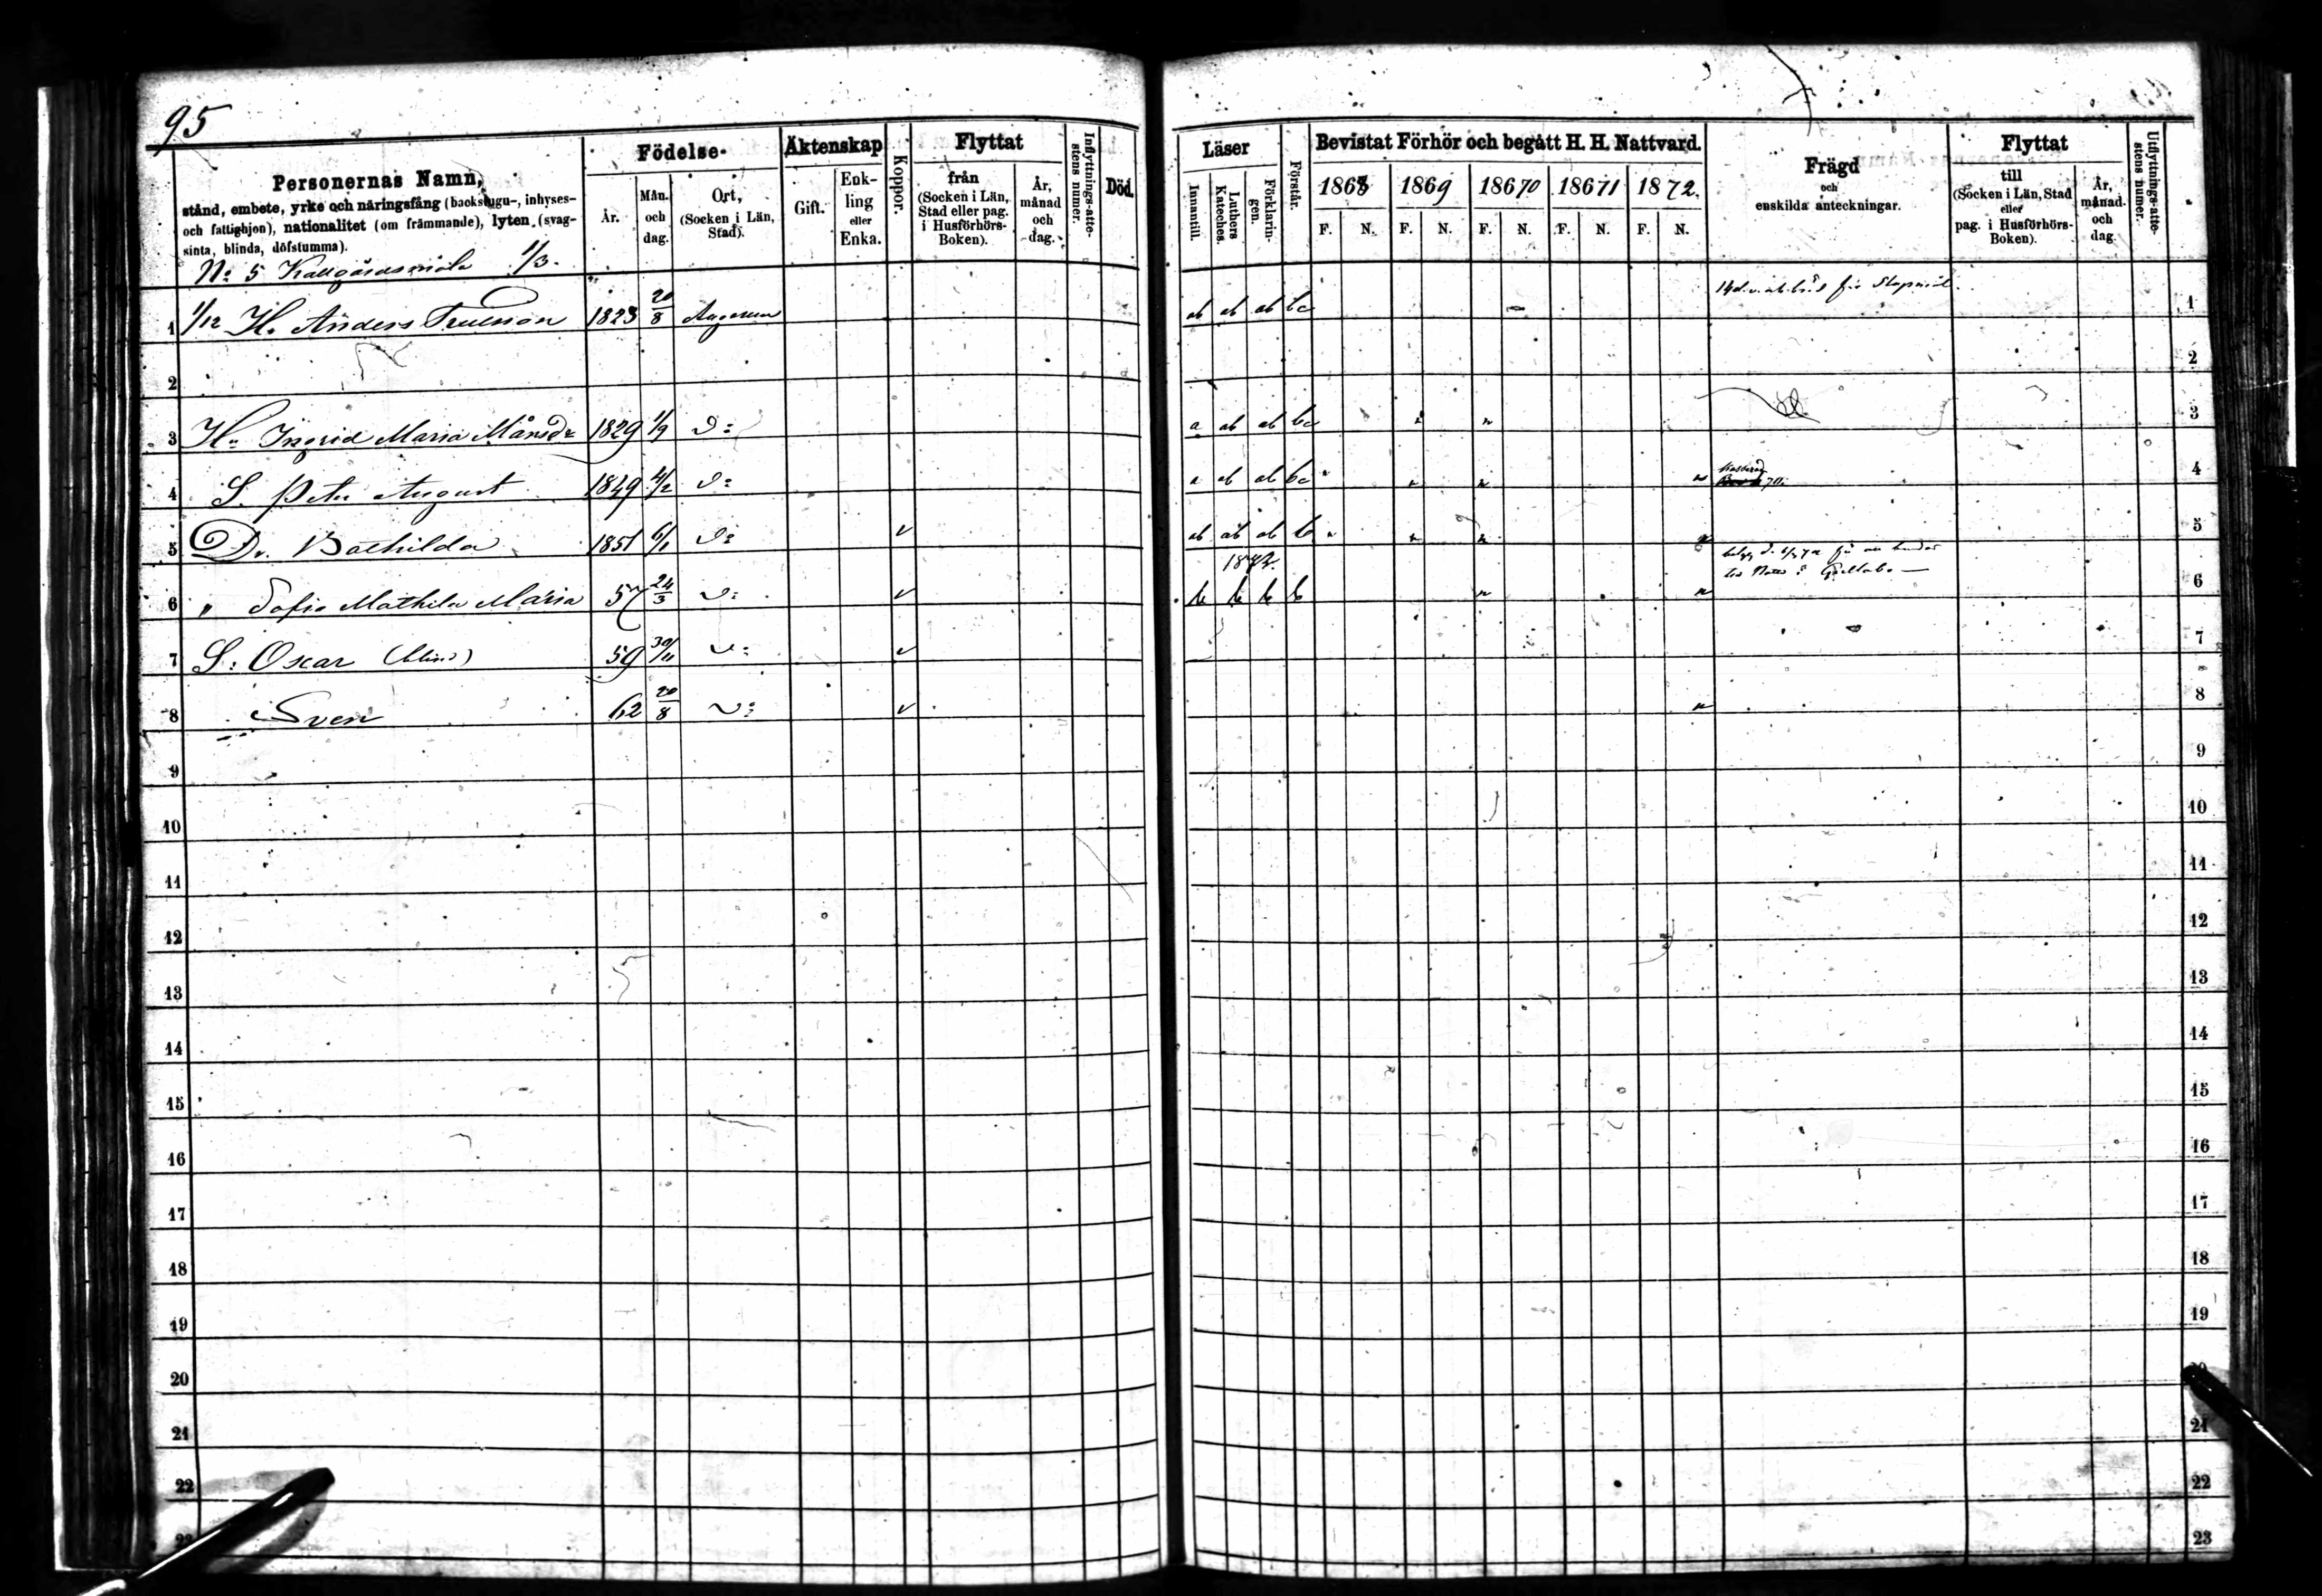 95
Personernas Namn,
stånd, embete, yrke och näringsfång (backstugu-, inhyses-
och fattighjon), nationalitet (om främmande), lyten (svag-
sinta, blinda, döfstumma).
Födelse-
År.
Mån. och dag.
Ort,
(Socken i Län, Stad).
Äktenskap
Gift.
Enk-
ling
eller
Enka.
Koppor.
Flyttat
från
(Socken i Län,
Stad eller pag.
i Husförhörs-
Boken).
År,
månad
och
dag.
Inflyttnings-atte-
stens numer.
Död.
Läser
Innantill.
Luthers
Kateches.
Förklarin-
gen.
Förstår.
Bevistat Förhör och begått H. H. Nattvard.
1868 1869 18670 18671 1872.
F. N. F. N. F. N. F. N. F. N.
Frägd
och
enskilda anteckningar.
Flyttat
till
(Socken i Län, Stad
eller
pag. i Husförhörs-
Boken).
År,
månad
och
dag.
Utflyttnings-atte-
stens numer.
No 5 1/3.
1 1/12 H. Anders 1823 20/8 ab ab ab bc 1
2 2
3 Hu Ingrid Maria Månsdr 1829 1/9 D: a ab ab bc 3
4 S. Peter August 1849 4/2 D: a ab ab bc 70. 4
5 Dr. Bothilda 1851 6/1 D: v ab ab ab b 5
1872.
6 " Sofia Mathilda Maria 57 24/3 D: v b b b b 6
7 S: Oscar (blind) 59 30/11 D: v 7
8 Sven 62 20/8 D: v 8
9 9
10 10
11 11
12 12
13 13
14 14
15 15
16 16
17 17
18 18
19 19
20 20
21 21
22 22
23 23